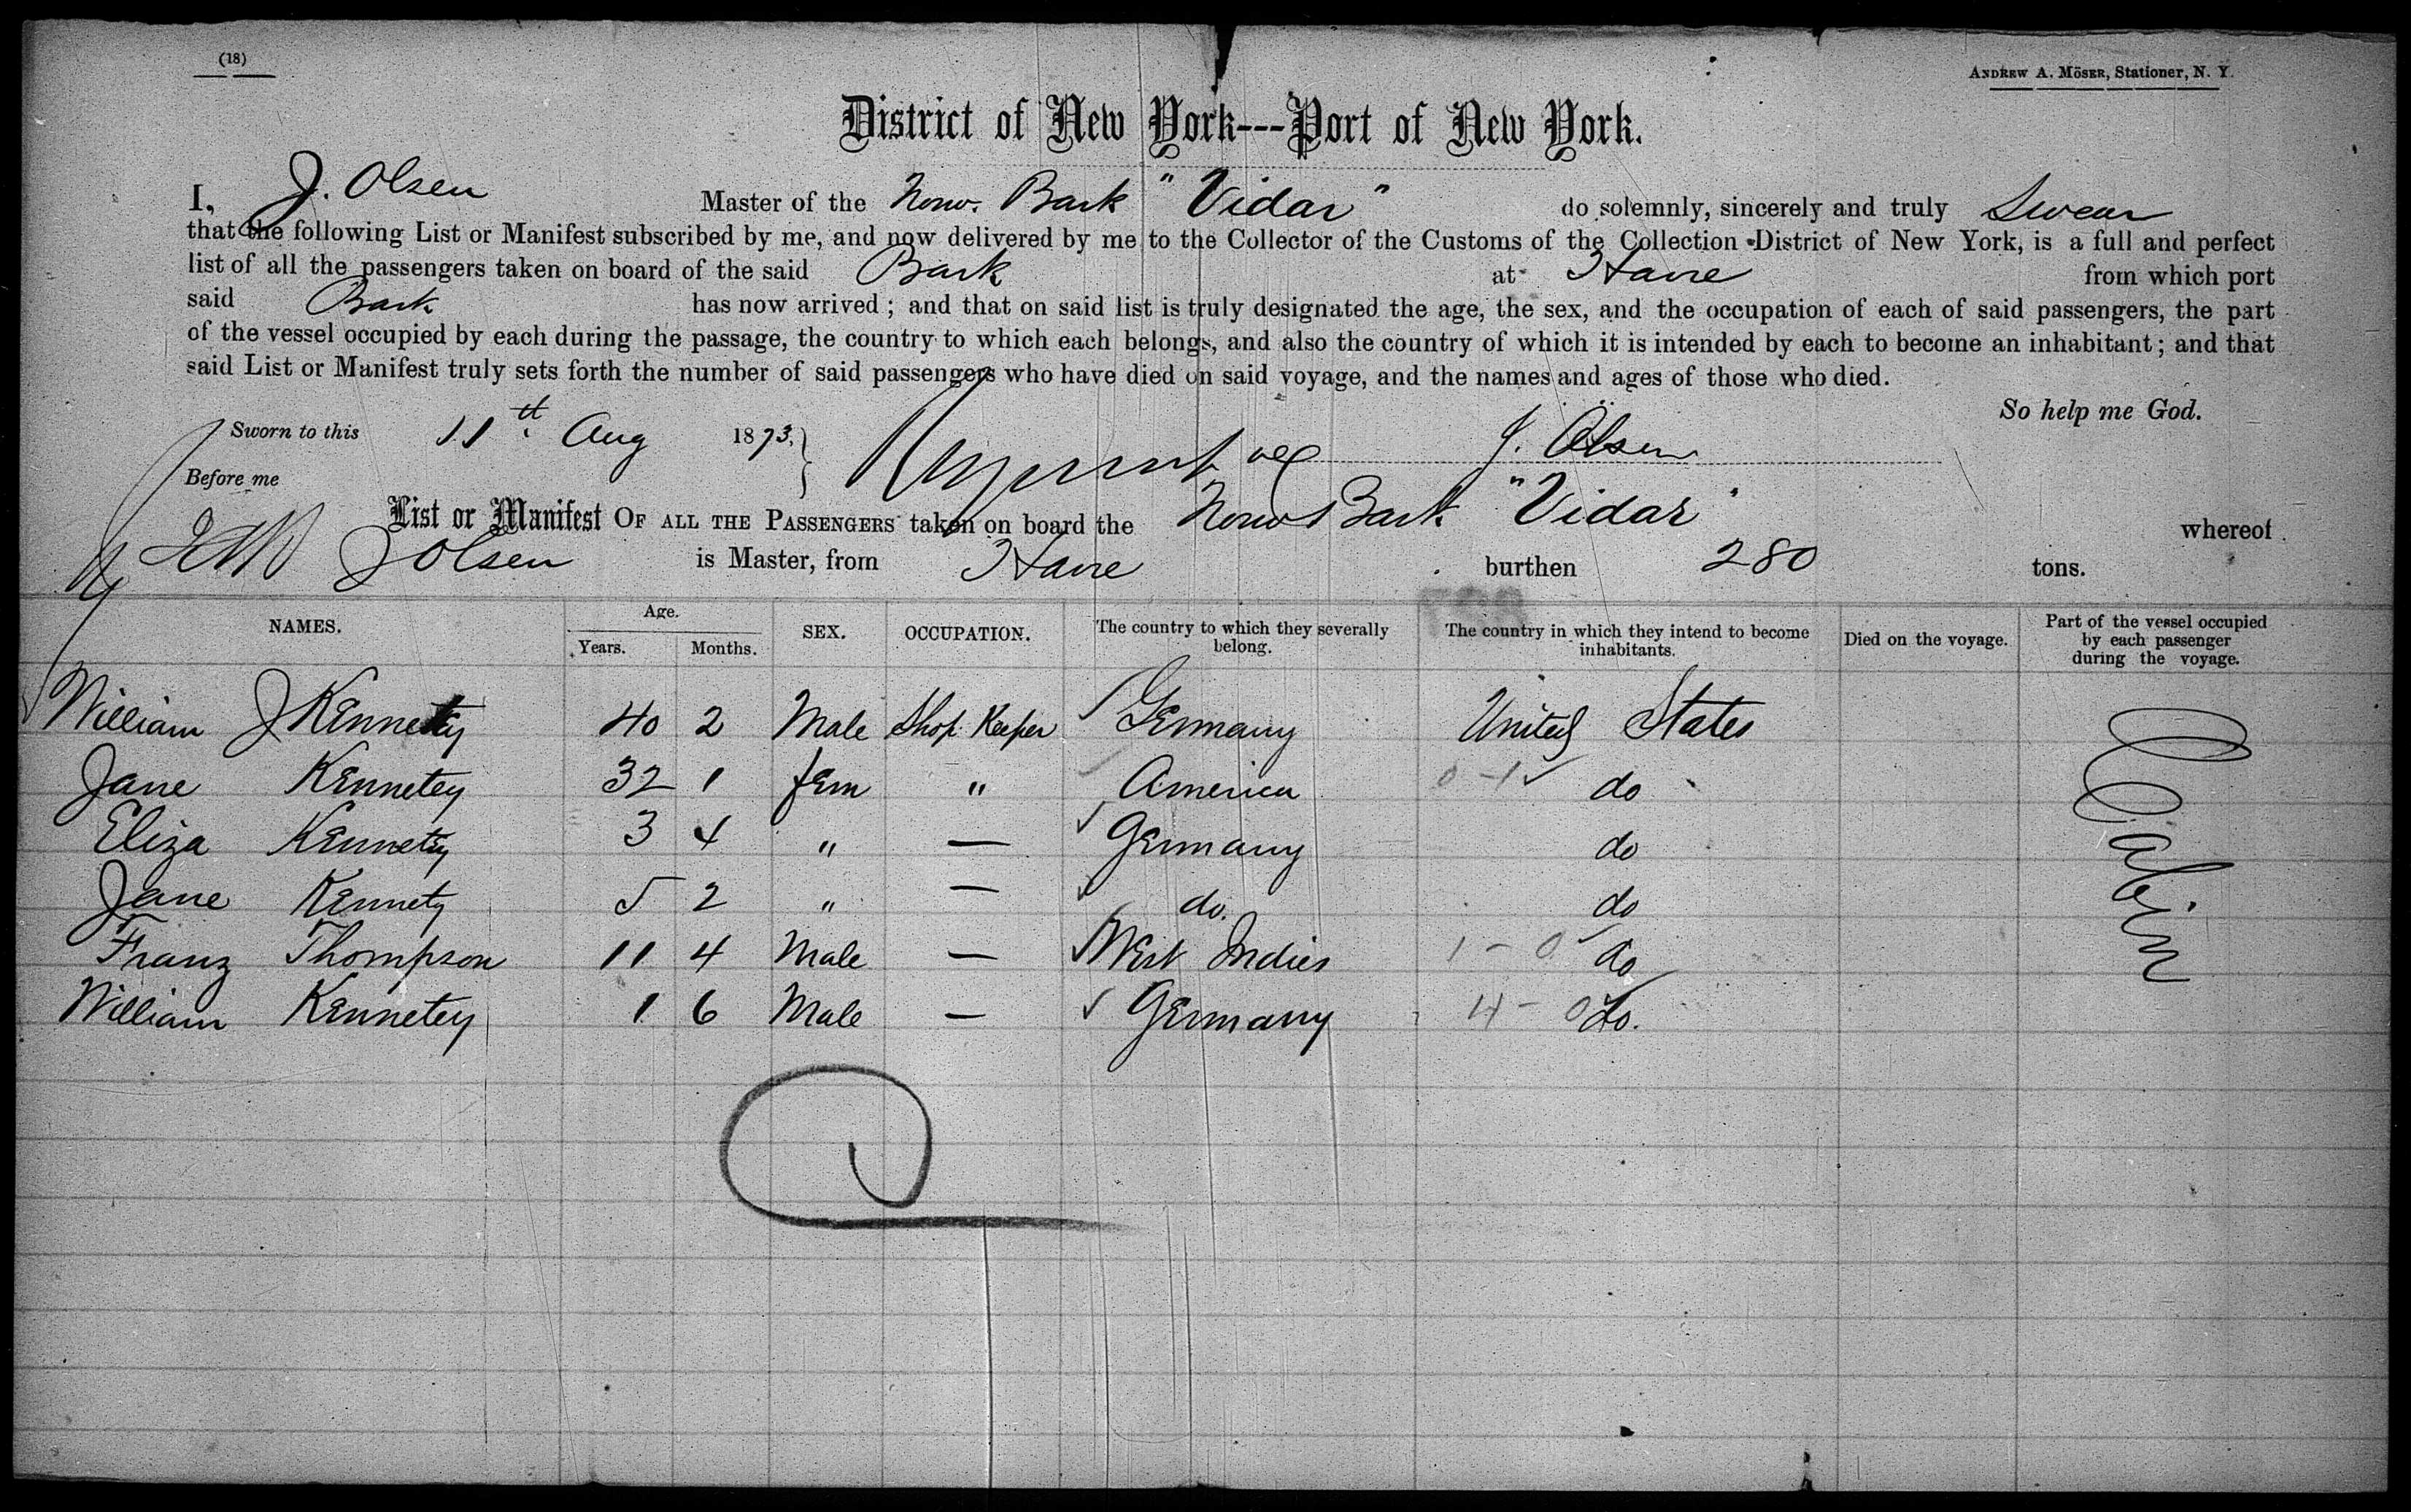 (18)
ANDREW A. MÖSER, Stationer, N. Y.
District of New York---Port of New York.
I, J. Olsen Master of the Norw. Bark "Vidar" do solemnly, sincerely and truly Swear
that the following List or Manifest subscribed by me, and now delivered by me to the Collector of the Customs of the Collection District of New York, is a full and perfect
list of all the passengers taken on board of the said Bark at Havre from which port
said Bark has now arrived; and that on said list is truly designated the age, the sex, and the occupation of each of said passengers, the part
of the vessel occupied by each during the passage, the country to which each belongs, and also the country of which it is intended by each to become an inhabitant; and that
said List or Manifest truly sets forth the number of said passengers who have died on said voyage, and the names and ages of those who died.
So help me God.
Sworn to this 11th Aug 1873, J. Olsen
Before me
List or Manifest OF ALL THE PASSENGERS taken on board the Norw Bark "Vidar" whereof
J Olsen is Master, from Havre burthen 280 tons.
NAMES. Age. Years. Months. SEX. OCCUPATION. The country to which they severally belong. The country in which they intend to become inhabitants. Died on the voyage. Part of the vessel occupied by each passenger during the voyage.
William J Kennetey 40 2 Male Shop Keeper Germany United States
Jane Kennetey 32 1 fem " America 0-1 do
Eliza Kennetey 3 4 " — Germany do
Jane Kennety 5 2 " — do. do
Franz Thompson 11 4 Male — West Indies 1-0 do
William Kennetey 1 6 Male — Germany 4-0 do.
Cabin